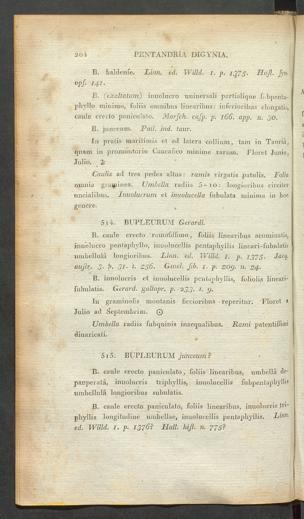 204 PENTANDRIA DIGYNIA.
B. baldense. Linn. ed. Willd. 1. p. 1375. Host. syn.
opf. 141.
B. (exaltatum) involucro universali partialique subpenta-
phyllo minimo, foliis omnibus linearibus: inferioribus elongatis,
caule erecto paniculato. Marsch. casp. p. 166. app. n. 30.
B. junceum. Pall. ind. taur.
In pratis maritimis et ad latera collium, tam in Tauria,
quam in promontorio Caucasico minime rarum. Floret Junio,
Julio. ♃
Caulis ad tres pedes altus: ramis virgatis patulis. Folia
omnia graminea. Umbella radiis 5-10: longioribus circiter
uncialibus. Involucrum et involucella subulata minima in hoc
genere.
514. BUPLEURUM Gerardi.
B. caule erecto ramosissimo, foliis linearibus acuminatis,
involucro pentaphyllo, involucellis pentaphyllis lineari-subulatis
umbellula longioribus. Linn. ed. Willd. 1. p. 1375. Jacq.
austr. 3. p. 31. t. 256. Gmel. sib. 1. p. 209. n. 24.
B. involucris et involucellis pentaphyllis, foliolis lineari-
subulatis. Gerard. gallopr. p. 233. t. 9.
In graminosis montanis siccioribus reperitur. Floret a
Julio ad Septembrim. ☉
Umbella radiis subquinis inaequalibus. Rami patentissimi
divaricati.
515. BUPLEURUM junceum?
B. caule erecto paniculato, foliis linearibus, umbella de-
pauperata, involucris triphyllis, involucellis subpentaphyllis
umbellula longioribus subulatis.
B. caule erecto paniculato, foliis linearibus, involucris tri-
phyllis longitudine umbellae, involucellis pentaphyllis. Linn.
ed. Willd. 1. p. 1376? Hall. hist. n. 775?